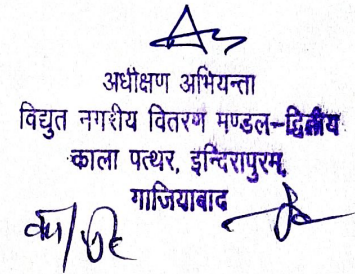 अधीक्षण अभियन्ता
विद्युत नगरीय वितरण मण्डल-द्वितीय
काला पत्थर, इन्दिरापुरम,
गाजियाबाद